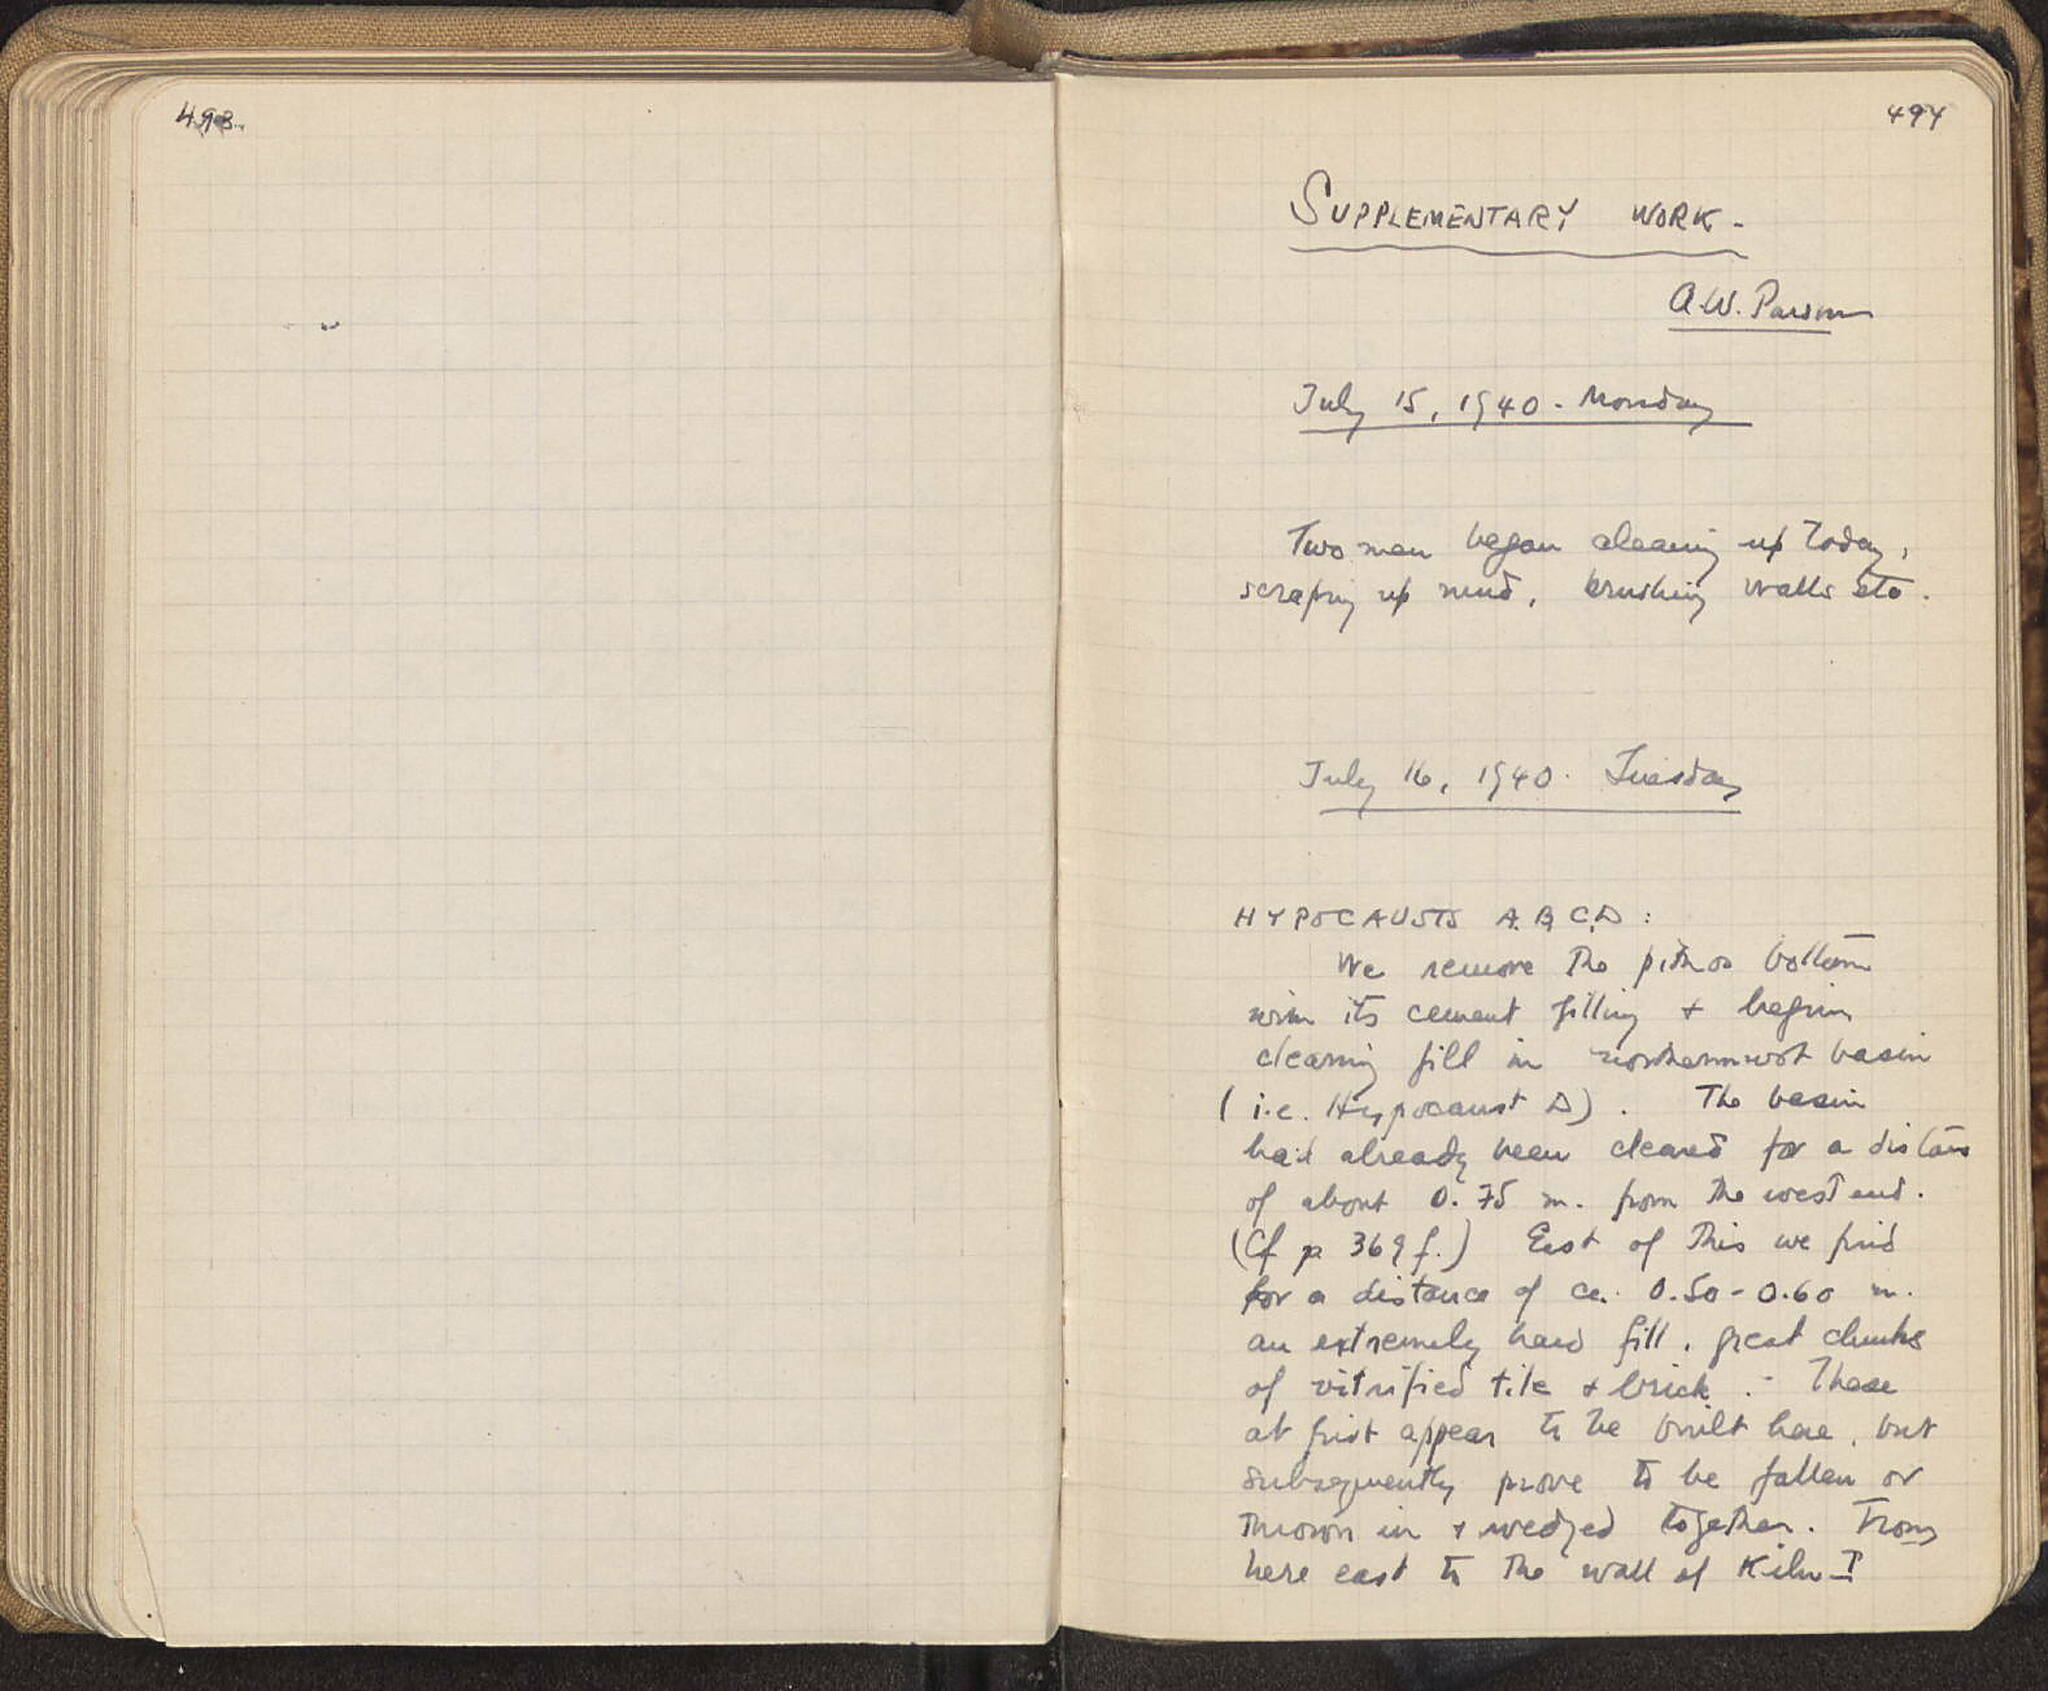 493
494
SUPPLEMENTARY WORK -
A.W. Parsons
July 15, 1940 - Monday
Two men began cleaning up today,
scraping up mud, brushing walls etc.
July 16, 1940. Tuesday
HYPOCAUSTS A, B, C, D :
We remove the pithos bottom
with its cement filling + begin
clearing fill in northernmost basin
(i.e. Hypocaust D). The basin
had already been cleared for a distance
of about 0.75 m. from the west end.
(Cf p 369 f.) East of this we find
for a distance of ca. 0.50 - 0.60 m.
an extremely hard fill, great chunks
of vitrified tile + brick. - These
at first appear to be built here, but
subsequently prove to be fallen or
thrown in + wedged together. From
here east to the wall of Kiln I